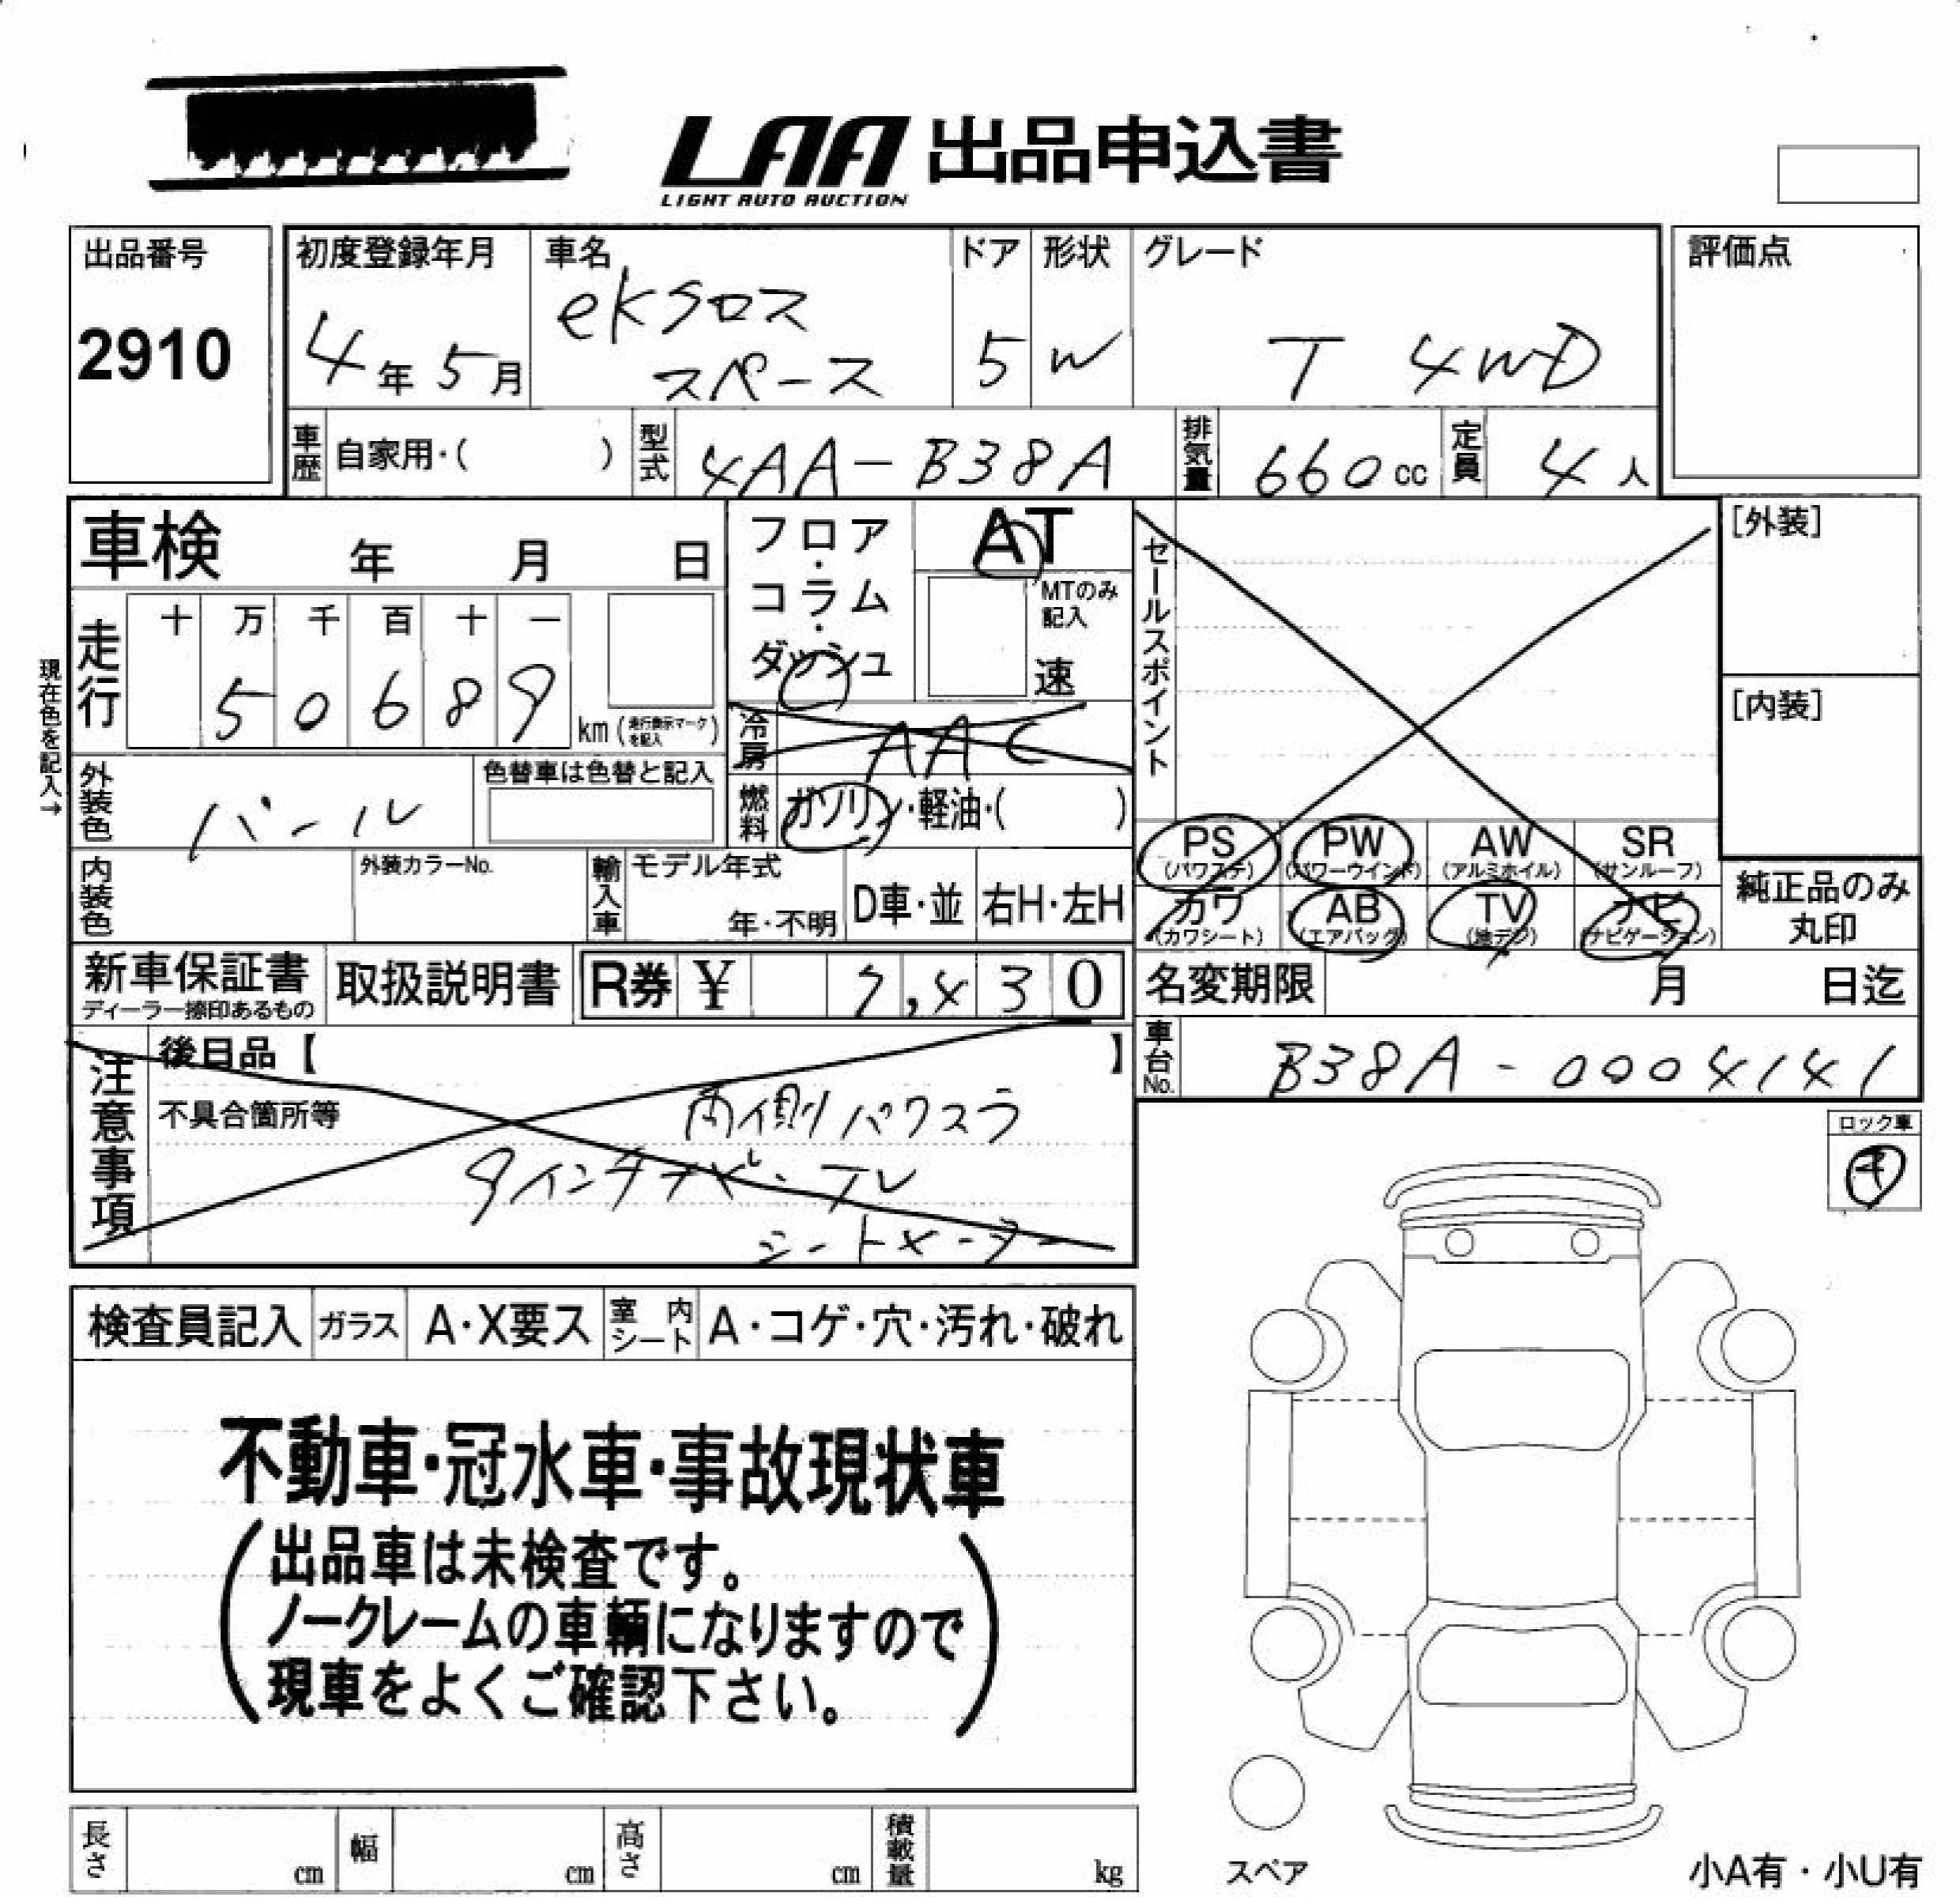 LAA 出品申込書
LIGHT AUTO AUCTION
出品番号
2910
初度登録年月
4年5月
車名
eKクロス
スペース
ドア
5
形状
W
グレード
T 4WD
評価点
車歴
自家用・( )
型式
4AA-B38A
排気量
660cc
定員
4人
車検 年 月 日
現在色を記入→
走行
十 万 千 百 十 一
5 0 6 8 9
km (走行表示マークを記入)
フロア・
コラム・
ダッシュ
AT
MTのみ
記入
速
冷房
AAC
燃料
ガソリン・軽油・( )
外装色
パール
色替車は色替と記入
内装色
外装カラーNo.
輸入車
モデル年式
年・不明
D車・並
右H・左H
セールスポイント
PS
(パワステ)
PW
(パワーウインド)
AW
(アルミホイル)
SR
(サンルーフ)
カワ
(カワシート)
AB
(エアバッグ)
TV
(地デジ)
ナビ
(ナビゲーション)
[外装]
[内装]
純正品のみ
丸印
新車保証書
ディーラー捺印あるもの
取扱説明書
R券 ¥ 7,430
名変期限 月 日迄
車台No.
B38A-0004141
注意事項
後日品【 】
不具合箇所等
両側パワスラ
9インチナビ・テレ
シートヒーター
ロック車
検査員記入
ガラス
A・X要ス
室内シート
A・コゲ・穴・汚れ・破れ
不動車・冠水車・事故現状車
出品車は未検査です。
ノークレームの車輌になりますので
現車をよくご確認下さい。
長さ cm
幅 cm
高さ cm
積載量 kg
スペア
小A有・小U有